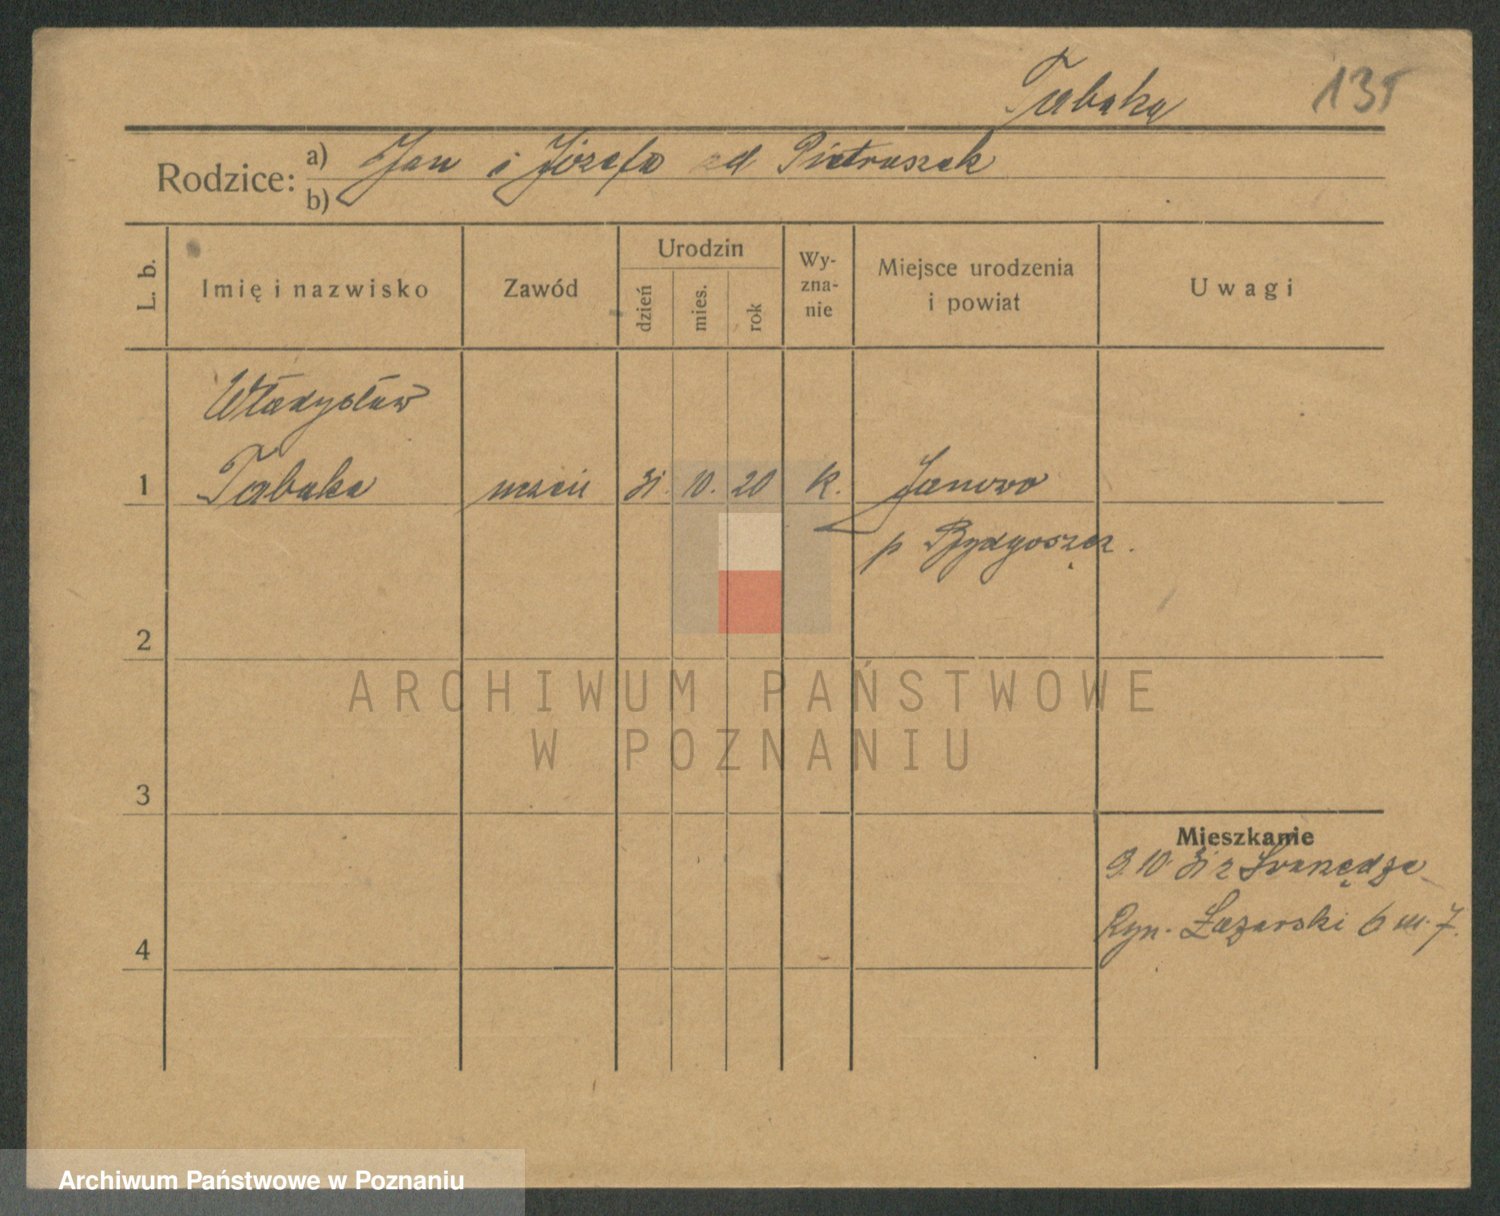 Tabaka
135
Rodzice:
a) Jan i Józefa zd Pietruszak
b)
L. b.
Imię i nazwisko
Zawód
Urodzin
dzień
mies.
rok
Wy-
zna-
nie
Miejsce urodzenia
i powiat
Uwagi
Władysław
1 Tabaka uczeń 31. 10. 20 k. Janowo
p Bydgoszcz.
2
ARCHIWUM PAŃSTWOWE
W POZNANIU
3
Mieszkanie
9.10. 31 z
4
Ryn. Łazarski 6 m. 7.
Archiwum Państwowe w Poznaniu